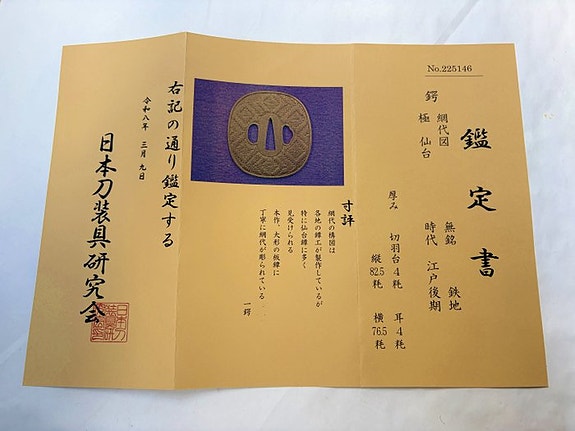 No.225146
鑑定書
鍔
網代図
極 仙台
無銘
鉄地
時代 江戸後期
厚み
切羽台4粍
耳4粍
縦82.5粍
横76.5粍
寸評
網代の構図は
各地の鐔工が製作しているが
特に仙台鐔に多く
見受けられる
本作、大形の板鐔に
丁寧に網代が彫られている
一鍔
右記の通り鑑定する
令和八年 三月九日
日本刀装具研究会